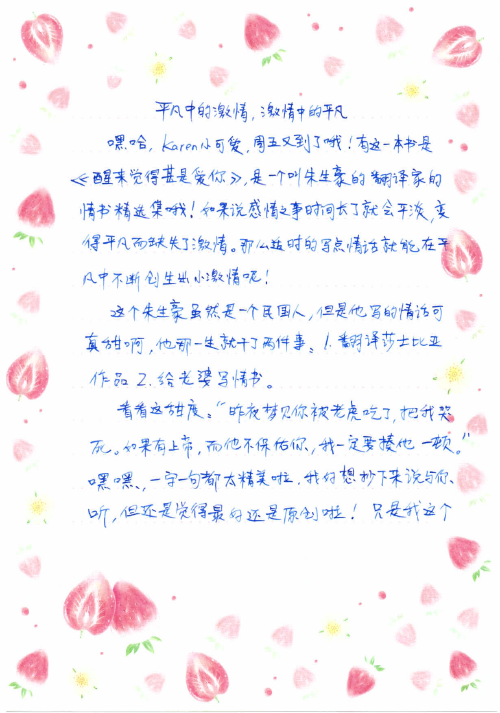 平凡中的激情,激情中的平凡
嘿哈,Karen小可爱,周五又到了哦!有这一本书是
《醒来觉得甚是爱你》,是一个叫朱生豪的翻译家的
情书精选集哦!如果说感情之事时间长了就会平淡,变
得平凡而缺失了激情。那么适时的写点情话就能在平
凡中不断创生出小激情呢!
这个朱生豪虽然是一个民国人,但是他写的情话可
真甜啊,他那一生就干了两件事、1.翻译莎士比亚
作品 2.给老婆写情书。
看看这甜度:“昨夜梦见你被老虎吃了,把我哭
死。如果有上帝,而他不保佑你,我一定要揍他一顿。”
嘿嘿、一字一句都太精美啦,我好想抄下来说与你
听,但还是觉得最好还是原创啦!只是我这个